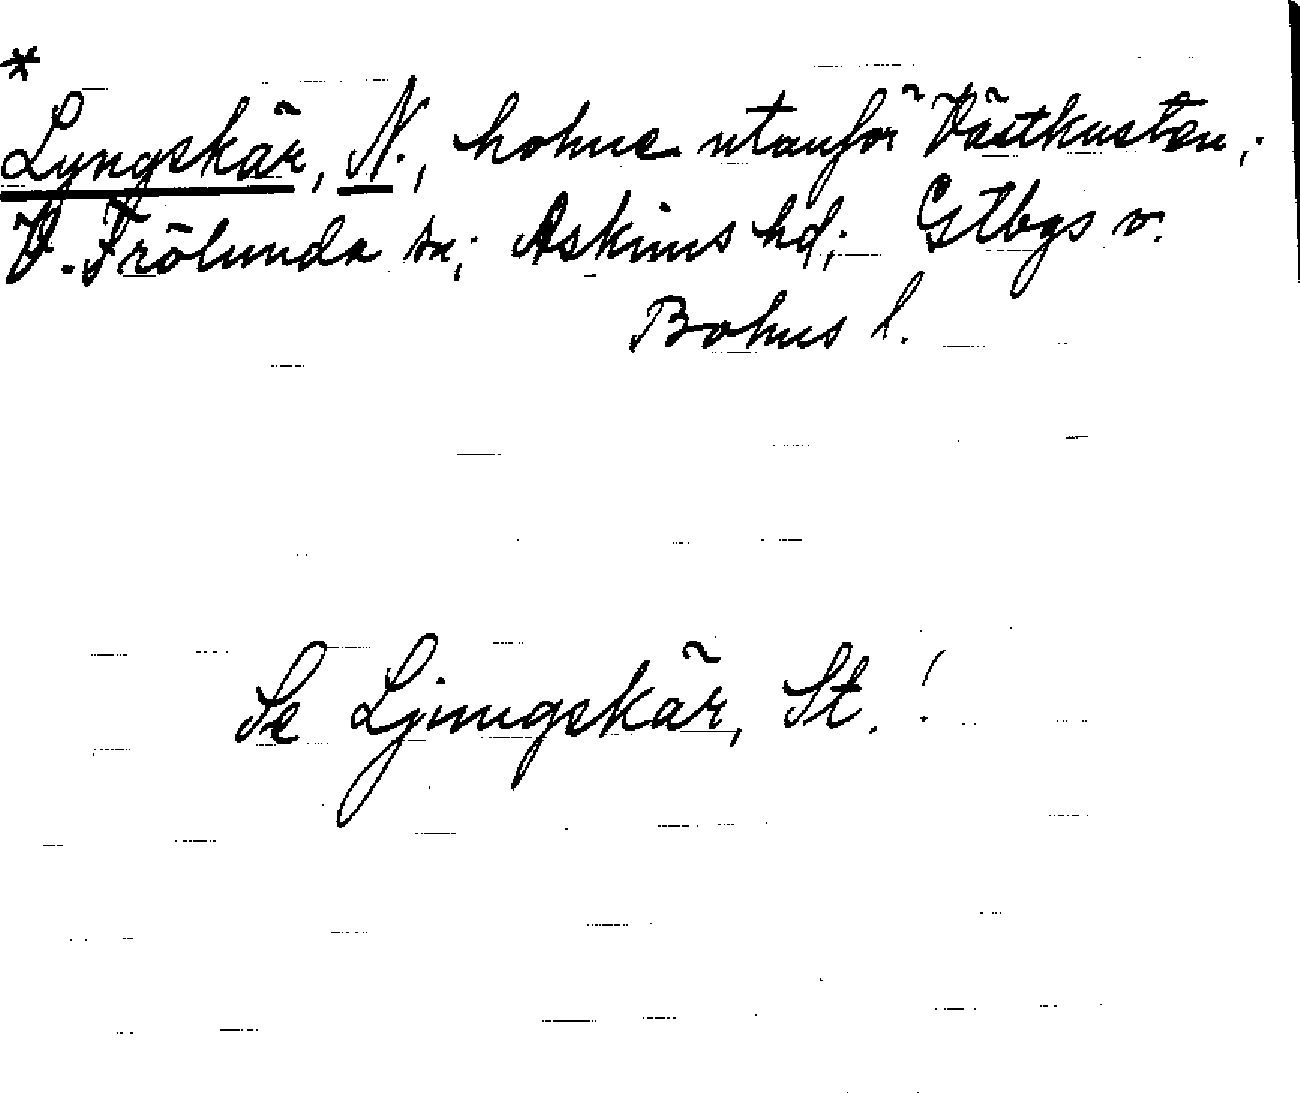 *
Lyngskär, N., holme utanför Västkusten;
V. Frölunda sn; Askims hd; Gtbgs o.
Bohus l.
Se Ljungskär, St.!